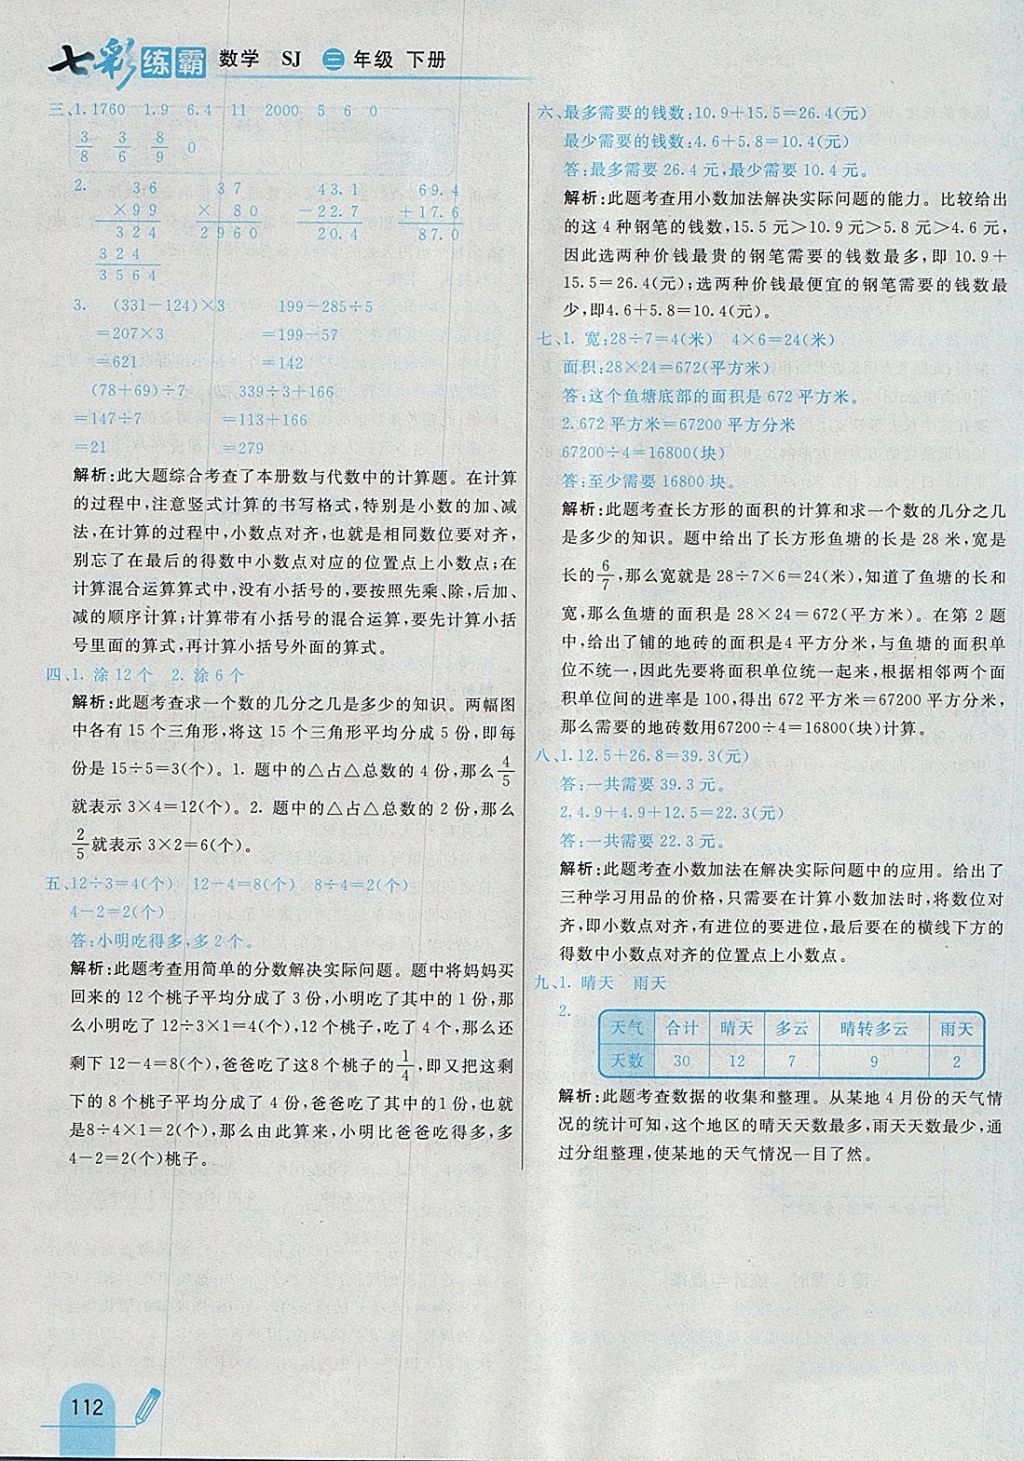 七彩练霸 数学 SJ 三年级 下册
三、1. 1760 1.9 6.4 11 2000 5 6 0
3/8 3/6 8/9 0
2. 36 37 43.1 69.4
×99 × 80 −22.7 +17.6
324 2960 20.4 87.0
324
3564
3. (331−124)×3 199−285÷5
=207×3 =199−57
=621 =142
(78+69)÷7 339÷3+166
=147÷7 =113+166
=21 =279
解析:此大题综合考查了本册数与代数中的计算题。在计算
的过程中,注意竖式计算的书写格式,特别是小数的加、减
法,在计算的过程中,小数点对齐,也就是相同数位要对齐,
别忘了在最后的得数中小数点对应的位置点上小数点;在
计算混合运算算式中,没有小括号的,要按照先乘、除,后加、
减的顺序计算;计算带有小括号的混合运算,要先计算小括
号里面的算式,再计算小括号外面的算式。
四、1. 涂12个 2. 涂6个
解析:此题考查求一个数的几分之几是多少的知识。两幅图
中各有 15 个三角形,将这 15 个三角形平均分成 5 份,即每
份是 15÷5=3(个)。1. 题中的△占△总数的 4 份,那么4/5
就表示 3×4=12(个)。2. 题中的△占△总数的 2 份,那么
2/5就表示 3×2=6(个)。
五、12÷3=4(个) 12−4=8(个) 8÷4=2(个)
4−2=2(个)
答:小明吃得多,多2个。
解析:此题考查用简单的分数解决实际问题。题中将妈妈买
回来的 12 个桃子平均分成了 3 份,小明吃了其中的 1 份,那
么小明吃了 12÷3×1=4(个),12 个桃子,吃了 4 个,那么还
剩下 12−4=8(个),爸爸吃了这8个桃子的1/4,即又把这剩
下的 8 个桃子平均分成了 4 份,爸爸吃了其中的1份,也就
是8÷4×1=2(个),那么由此算来,小明比爸爸吃得多,多
4−2=2(个)桃子。
六、最多需要的钱数:10.9+15.5=26.4(元)
最少需要的钱数:4.6+5.8=10.4(元)
答:最多需要 26.4 元,最少需要 10.4 元。
解析:此题考查用小数加法解决实际问题的能力。比较给出
的这 4 种钢笔的钱数,15.5 元>10.9 元>5.8 元>4.6 元,
因此选两种价钱最贵的钢笔需要的钱数最多,即 10.9+
15.5=26.4(元);选两种价钱最便宜的钢笔需要的钱数最
少,即4.6+5.8=10.4(元)。
七、1. 宽:28÷7=4(米) 4×6=24(米)
面积:28×24=672(平方米)
答:这个鱼塘底部的面积是 672 平方米。
2. 672 平方米=67200 平方分米
67200÷4=16800(块)
答:至少需要 16800 块。
解析:此题考查长方形的面积的计算和求一个数的几分之几
是多少的知识。题中给出了长方形鱼塘的长是 28 米,宽是
长的6/7,那么宽就是 28÷7×6=24(米),知道了鱼塘的长和
宽,那么鱼塘的面积是 28×24=672(平方米)。在第 2 题
中,给出了铺的地砖的面积是4 平方分米,与鱼塘的面积单
位不统一,因此先要将面积单位统一起来,根据相邻两个面
积单位间的进率是 100,得出 672 平方米=67200 平方分米,
那么需要的地砖数用67200÷4=16800(块)计算。
八、1. 12.5+26.8=39.3(元)
答:一共需要 39.3 元。
2. 4.9+4.9+12.5=22.3(元)
答:一共需要 22.3 元。
解析:此题考查小数加法在解决实际问题中的应用。给出了
三种学习用品的价格,只需要在计算小数加法时,将数位对
齐,即小数点对齐,有进位的要进位,最后要在的横线下方的
得数中小数点对齐的位置点上小数点。
九、1. 晴天 雨天
2.
天气 合计 晴天 多云 晴转多云 雨天
天数 30 12 7 9 2
解析:此题考查数据的收集和整理。从某地 4 月份的天气情
况的统计可知,这个地区的晴天天数最多,雨天天数最少,通
过分组整理,使某地的天气情况一目了然。
112